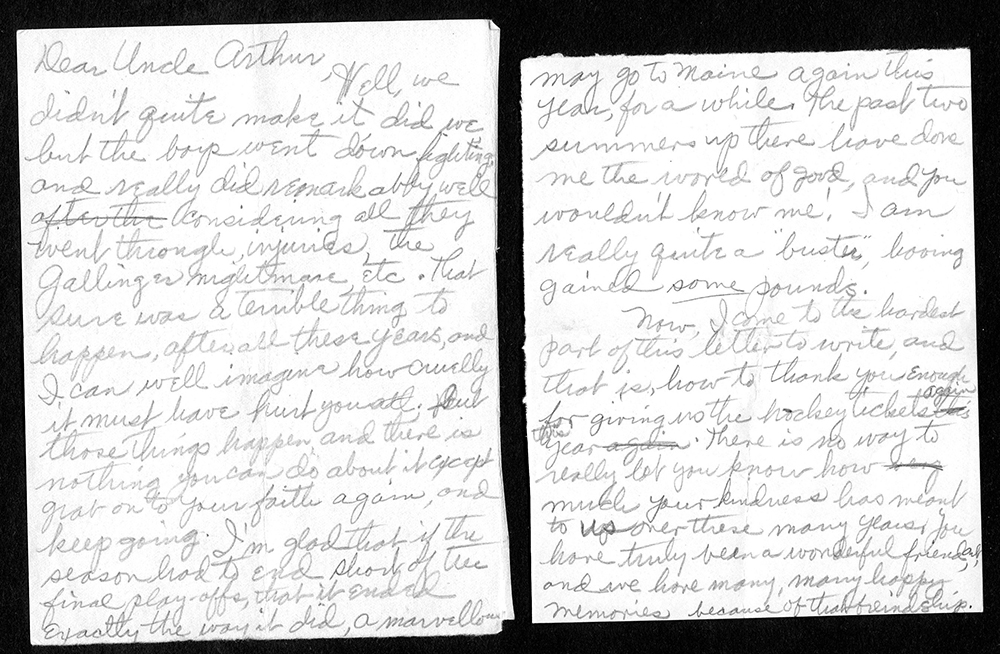 Dear Uncle Arthur,
Well, we
didn't quite make it did we
but the boys went down fighting,
and really did remarkably well
after the considering all they
went through, injuries, the
Gallinger nightmare etc. That
sure was a terrible thing to
happen, after all these years, and
I can well imagine how cruelly
it must have hurt you all. But
those things happen, and there is
nothing you can do about it except
grat on to your faith again, and
keep going. I'm glad that if the
season had to end short of the
final play-offs, that it ended
exactly the way it did, a marvellous
may go to Maine again this
year, for a while. The past two
summers up there have done
me the world of good, and you
wouldn't know me! I am
really quite a "buster", having
gained some pounds.
Now, I come to the hardest
part of this letter to write, and
that is, how to thank you enough
for giving us the hockey tickets again
this year again. There is no way to
really let you know how very
much your kindness has meant
to us over these many years. You
have truly been a wonderful friend,
and we have many, many happy
memories because of that freindship.